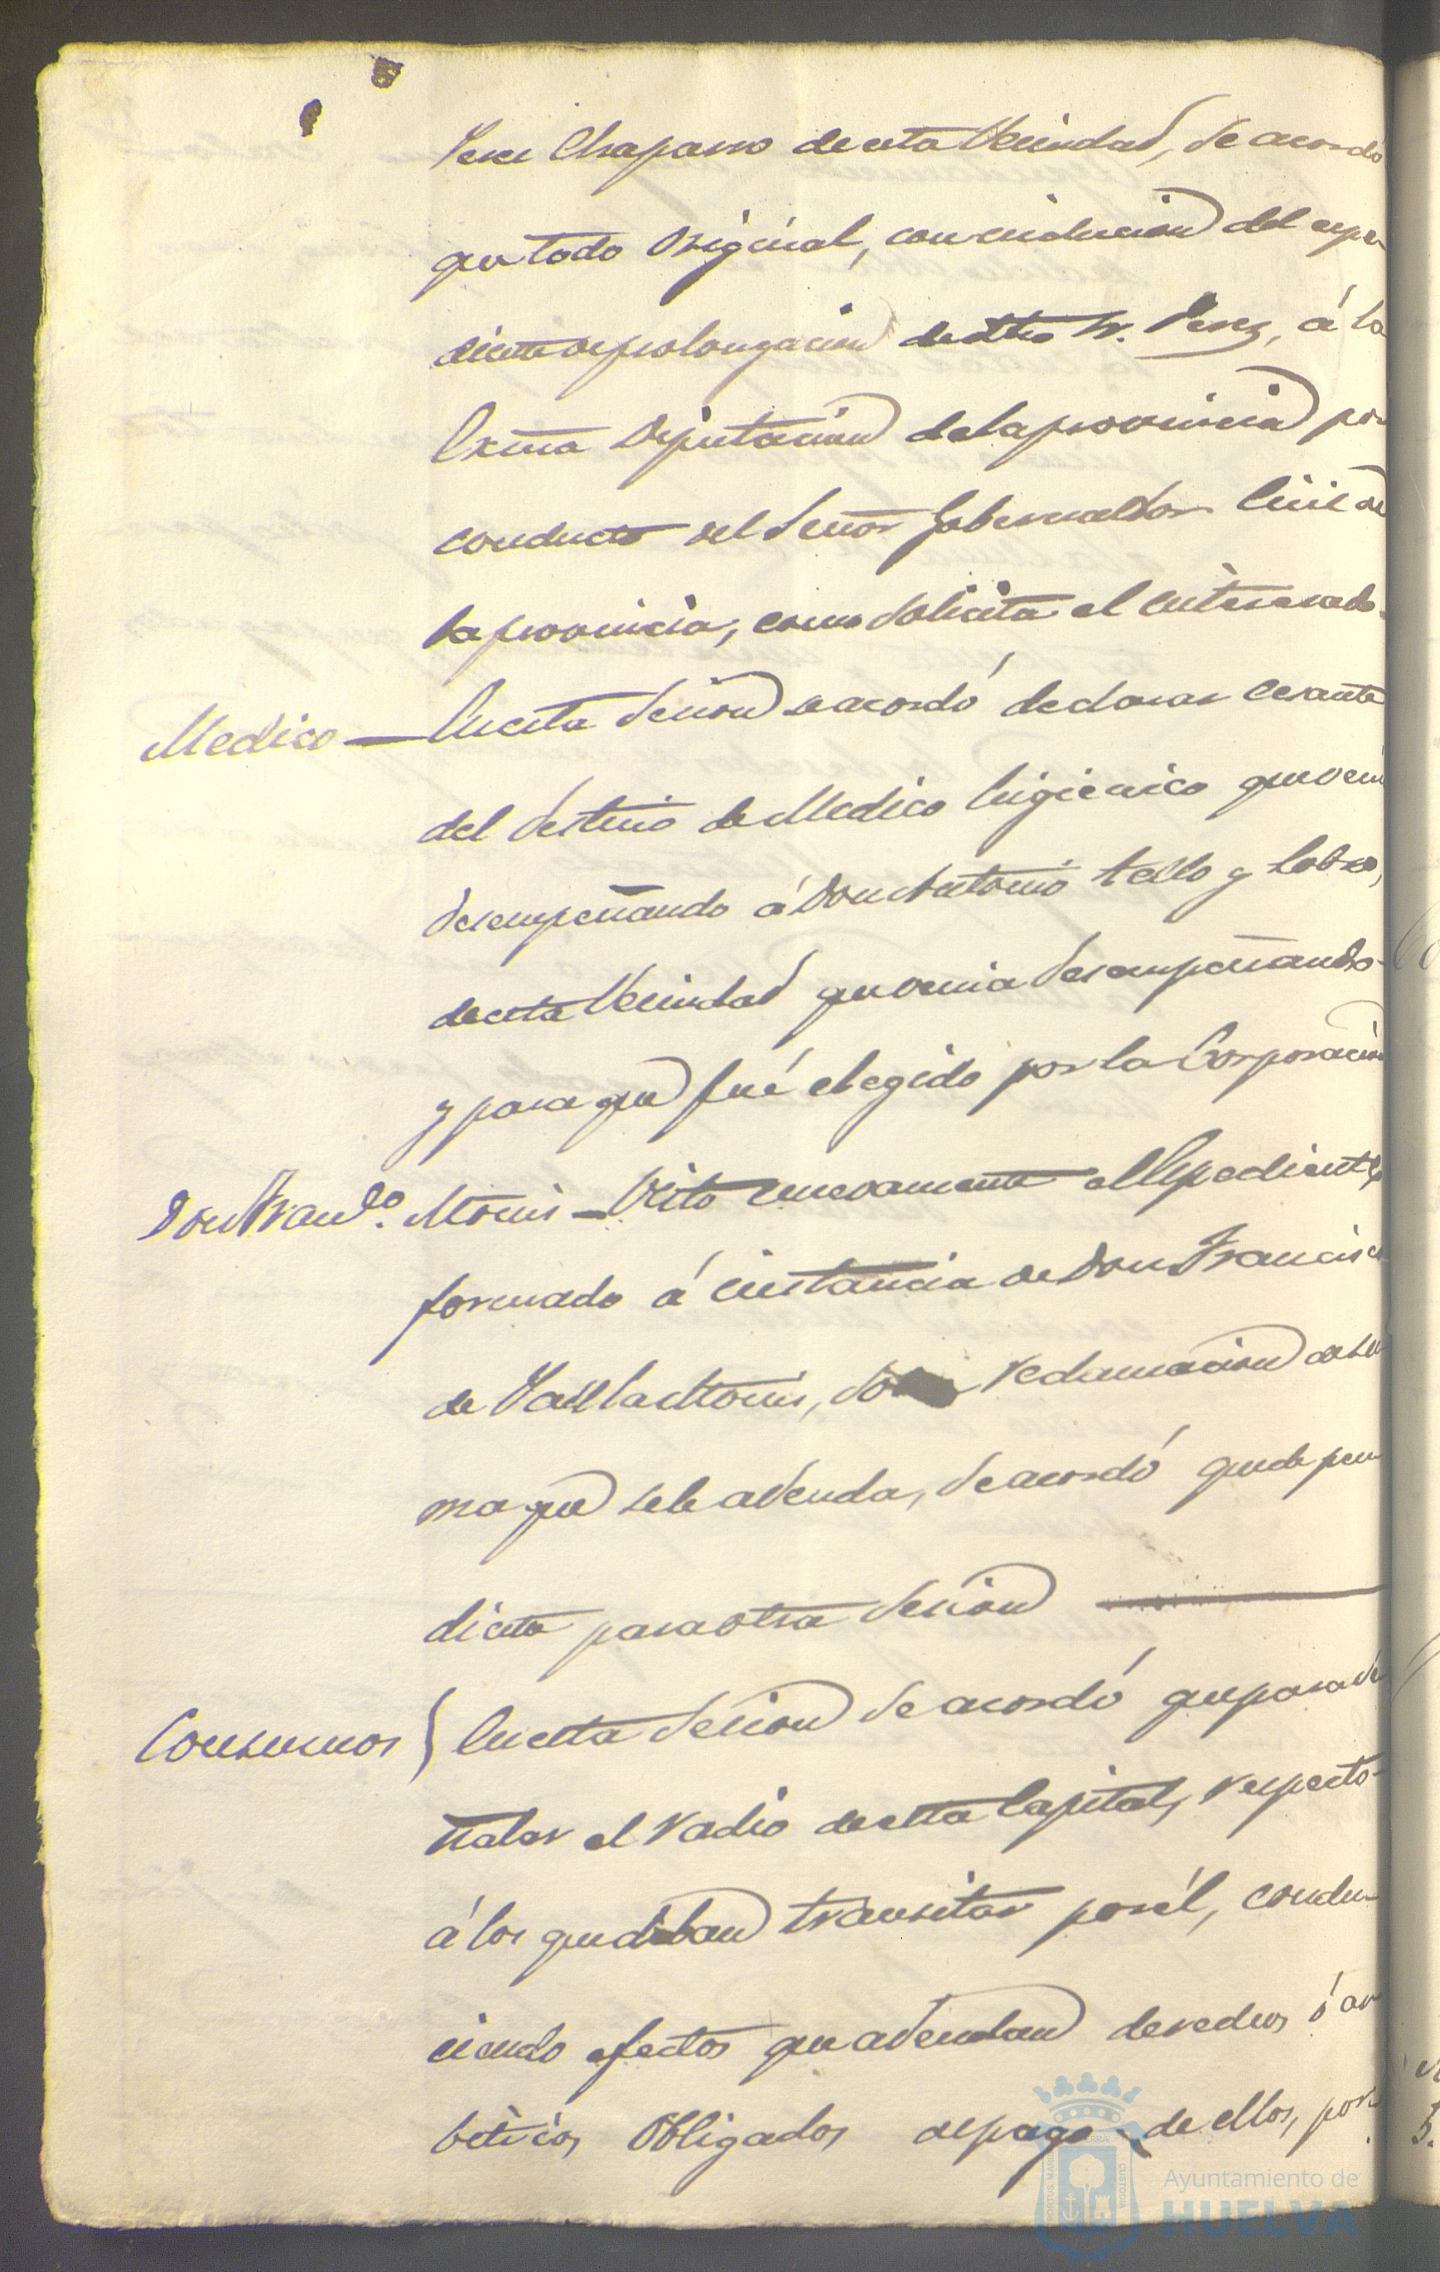 Perez Chaparro de esta Vecindad, Se acordó
que todo Original, con inclusion del espe-
diente de prolongacion de dho Sr. Perez, á la
Exma Diputacion de la provincia por
conducto del Señor Gobernador Civil de
la provincia, como Solicita el interesado-
Medico — En esta Sesion se acordó declarar cesante
del Destino de Medico higienico que veni
desempeñando á Don Antonio tello y Lobo,
de esta Vecindad que venia desempeñando-
y para que fué elegido por la Corporacion
Don Franco. Monis — Visto nuevamente el Espediente
formado á instancia de Don Francisco
de Paula Monis, reclamacion de su
ma que se le adeuda, Se acordó quede pen
diente para otra Sesion
Consumos } En esta Sesion Se acordó que para se
ñalar el radio de esta Capital, respecto-
á los que deban transitar por él, condu-
ciendo efectos que adeudan derechos ó ar
bitrios, Obligados al pago de ellos, por
Ayuntamiento de
HUELVA